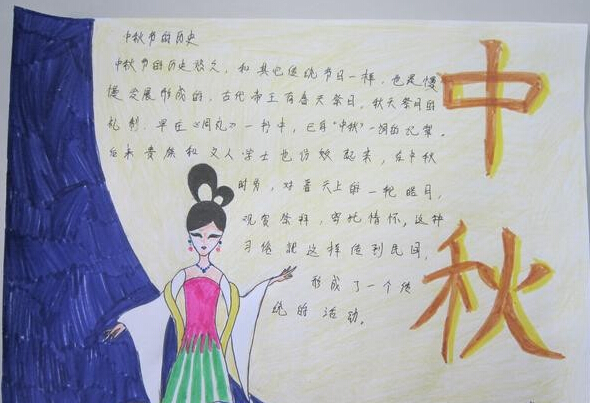 中秋节的历史
中秋节的历史悠久，和其它传统节日一样，也是慢
慢发展形成的。古代帝王有春天祭日，秋天祭月的
礼制，早在《周礼》一书中，已有“中秋”一词的记载。
后来贵族和文人学士也仿效起来，在中秋
时节，对着天上的一轮皓月，
观赏祭拜，寄托情怀，这种
习俗就这样传到民间，
形成了一个传
统的活动。
中
秋